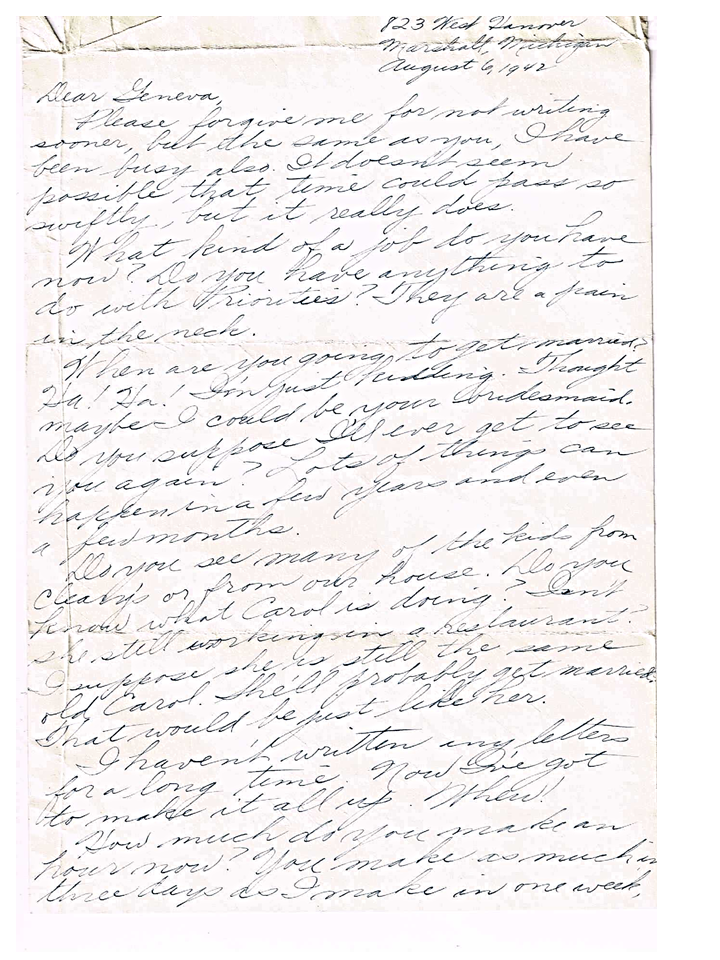 823 West Hanover
Marshall, Michigan
August 6, 1942
Dear Geneva,
Please forgive me for not writing
sooner, but the same as you, I have
been busy also. It doesn't seem
possible that time could pass so
swiftly, but it really does.
What kind of a job do you have
now? Do you have anything to
do with Priorities? They are a pain
in the neck.
When are you going to get married?
Ha! Ha! I'm just kidding. Thought
maybe I could be your bridesmaid.
Do you suppose I'll ever get to see
you again? Lots of things can
happen in a few years and even
a few months.
Do you see many of the kids from
Cleary's or from our house. Do you
know what Carol is doing? Isn't
she still working in a Restaurant?
I suppose she is still the same
old Carol. She'll probably get married.
That would be just like her.
I haven't written any letters
for a long time. Now I've got
to make it all up. Whew!
How much do you make an
hour now? You make as much in
three days as I make in one week,